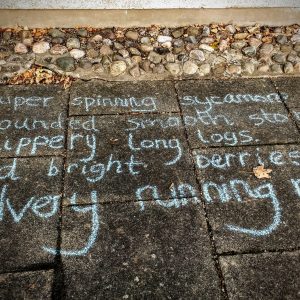 uper spinning sycamor
ounded smooth sto
ippery long logs.
d bright berries
lvery running